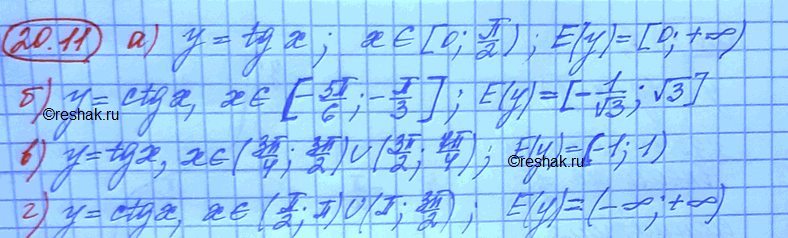 20.11 а) y = tg x ; x ∈ [0; π/2) ; E(y) = [0; +∞)
б) y = ctg x, x ∈ [-5π/6 ; -π/3] ; E(y) = [-1/√3 ; √3]
©reshak.ru
в) y = tg x, x ∈ (3π/4 ; 3π/2) ∪ (3π/2 ; 7π/4) ; E(y) = (-1; 1)
©reshak.ru
г) y = ctg x, x ∈ (π/2 ; π) ∪ (π ; 3π/2) ; E(y) = (-∞; +∞)